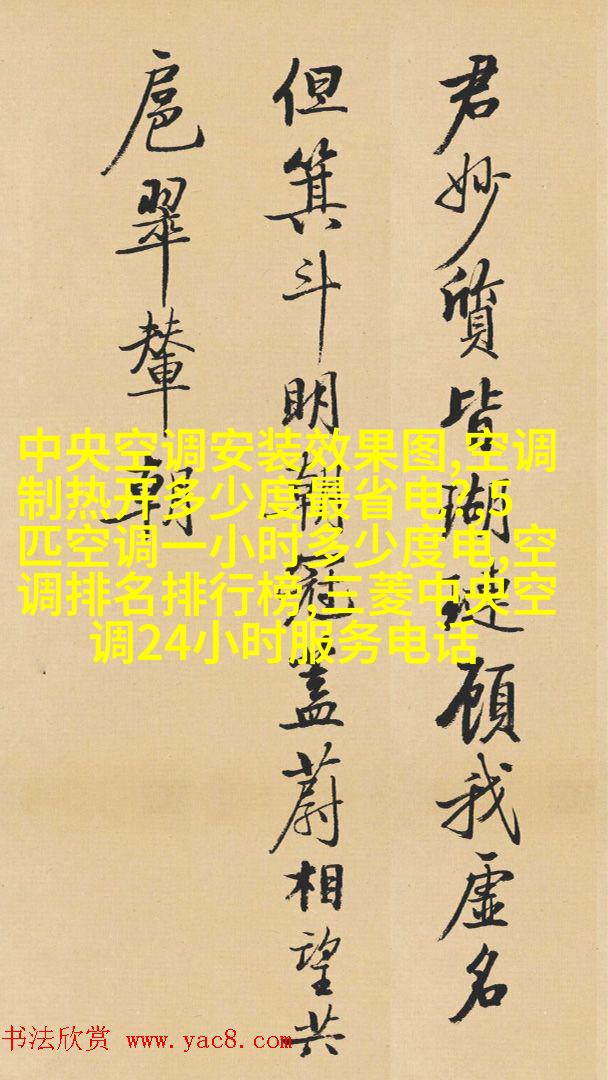 君妙質皆瑚璉顧我虛名
但箕斗明朝冠蓋蔚相望共
扈翠輦朝
中央空调安装效果图,空调
制热开多少度最省电?,5
匹空调一小时多少度电,空
调排名排行榜,三菱中央空
调24小时服务电话
书法欣赏 www.yac8.com